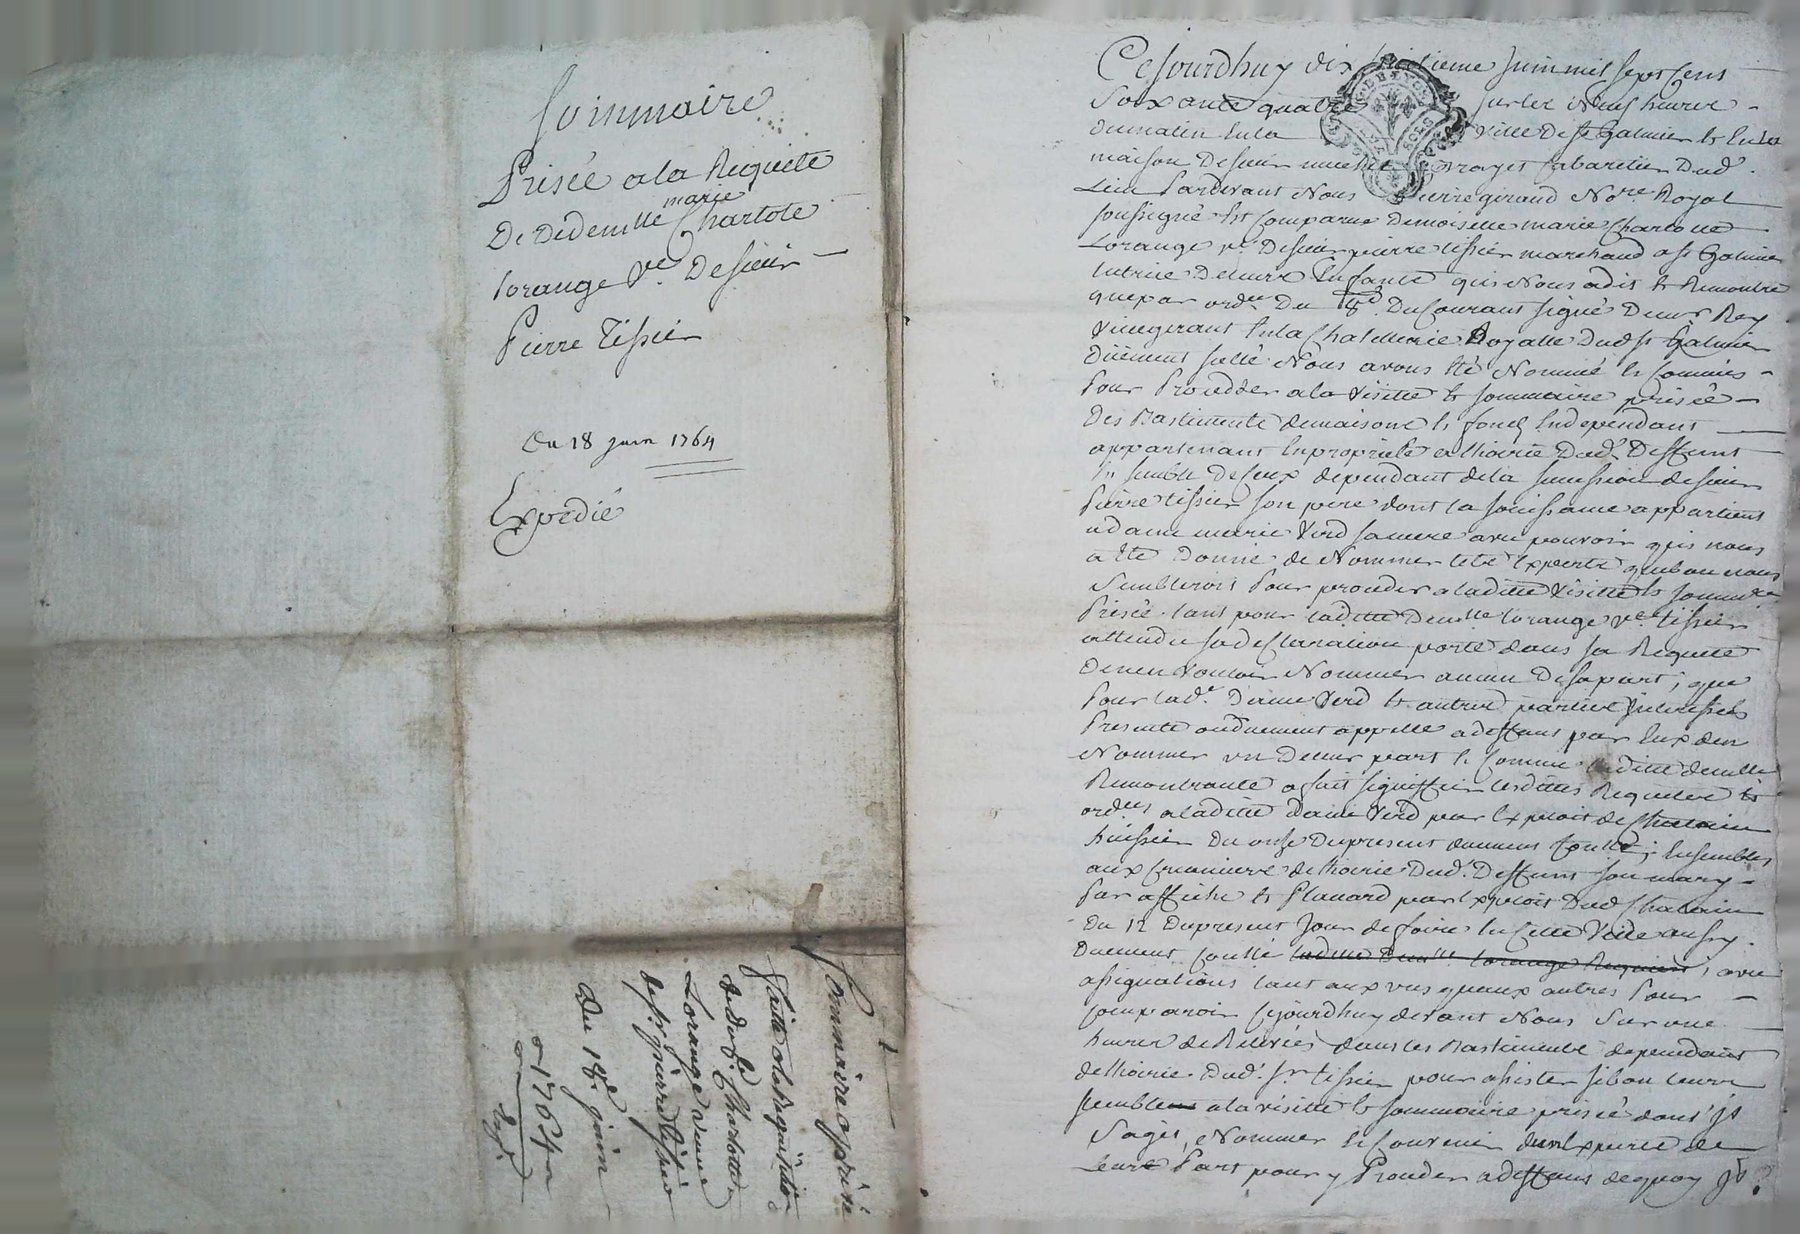 Sommaire
Prisée a la Requete
De Dedemlle marie Charlote
Lorange Ve De sieur
Pierre Tissier
Du 18 juin 1764
Expedié
Sommaire apprisée
faitte a la Requisition
de delle Charlotte
Lorange veuve
de sr. pierre tissier
Du 18e juin
1764
Cejourdhuy dix huitieme Juin mil sept cens
Soixante quatre sur les Neuf heures
du matin en la Ville De St Galmier et en la
maison De sieur michel Cabaretier Dud.
Lieu Pardevant Nous Pierre giraud Nore. Royal
soussigné Est Comparue Demoiselle marie Charlotte
Lorange ve De sieur pierre tissier marchand a St Galmier
tutrice De leurs Enfants qui Nous a dit et Remontré
que par ordce Du 8e. Du Courant signé De mr Rey
Vicegerant En la Chatellenie Royalle Dud St Galmier
Düement scellé Nous avons Eté Nommé et Commis
Pour Proceder a la Visitte et sommaire prisée
Des Bastiments de maisons et fonds Independant
appartenant En propriété a lhoirie Dud. Deffunt
En semble De Ceux dependant de la succession de sieur
Pierre tissier son pere dont la jouissance appartient
a dame marie Verd sa mere avec pouvoir qui nous
a Eté Donné de Nommer tels Experts que bon nous
Sembleroit Pour proceder a laditte Visitte et sommre
Prisée tant pour laditte Demlle Lorange ve tissier
attendu sa declaration porté dans sa Requete
De n'en Vouloir Nommer aucun De sa part, que
Pour lade. Dame Verd et autres parties Interessés
Presents ou duement appellé a deffaut par Eux d'en
Nommer un De leur part et Comme laditte demlle
Remontrante a fait signiffier lesdittes Requete et
ordces a laditte Dame Verd par Exploit de Chatelain
huissier Du onze Du present duement Conllé; Ensembles
aux Creanciers de lhoirie Dud. Deffunt son mary
Par affiche et Placard par Exploit Dud Chatelain
Du 12 Du present Jour de foire En Cette Ville aussy
Duement Conllé laditte Demlle Lorange Requiert, avec
assignations tant aux uns qu'aux autres Pour
Comparoir Cejourdhuy devant Nous Sur une
heures de Relevées dans les Bastiments dependants
de lhoirie Dud. Sr tissier pour assister si bon leurs
semble a la visitte et sommaire prisée dont il
Sagit, Nommer et Convenir d'un Experts de
Leurs Part pour y Proceder a deffaut de quoy il